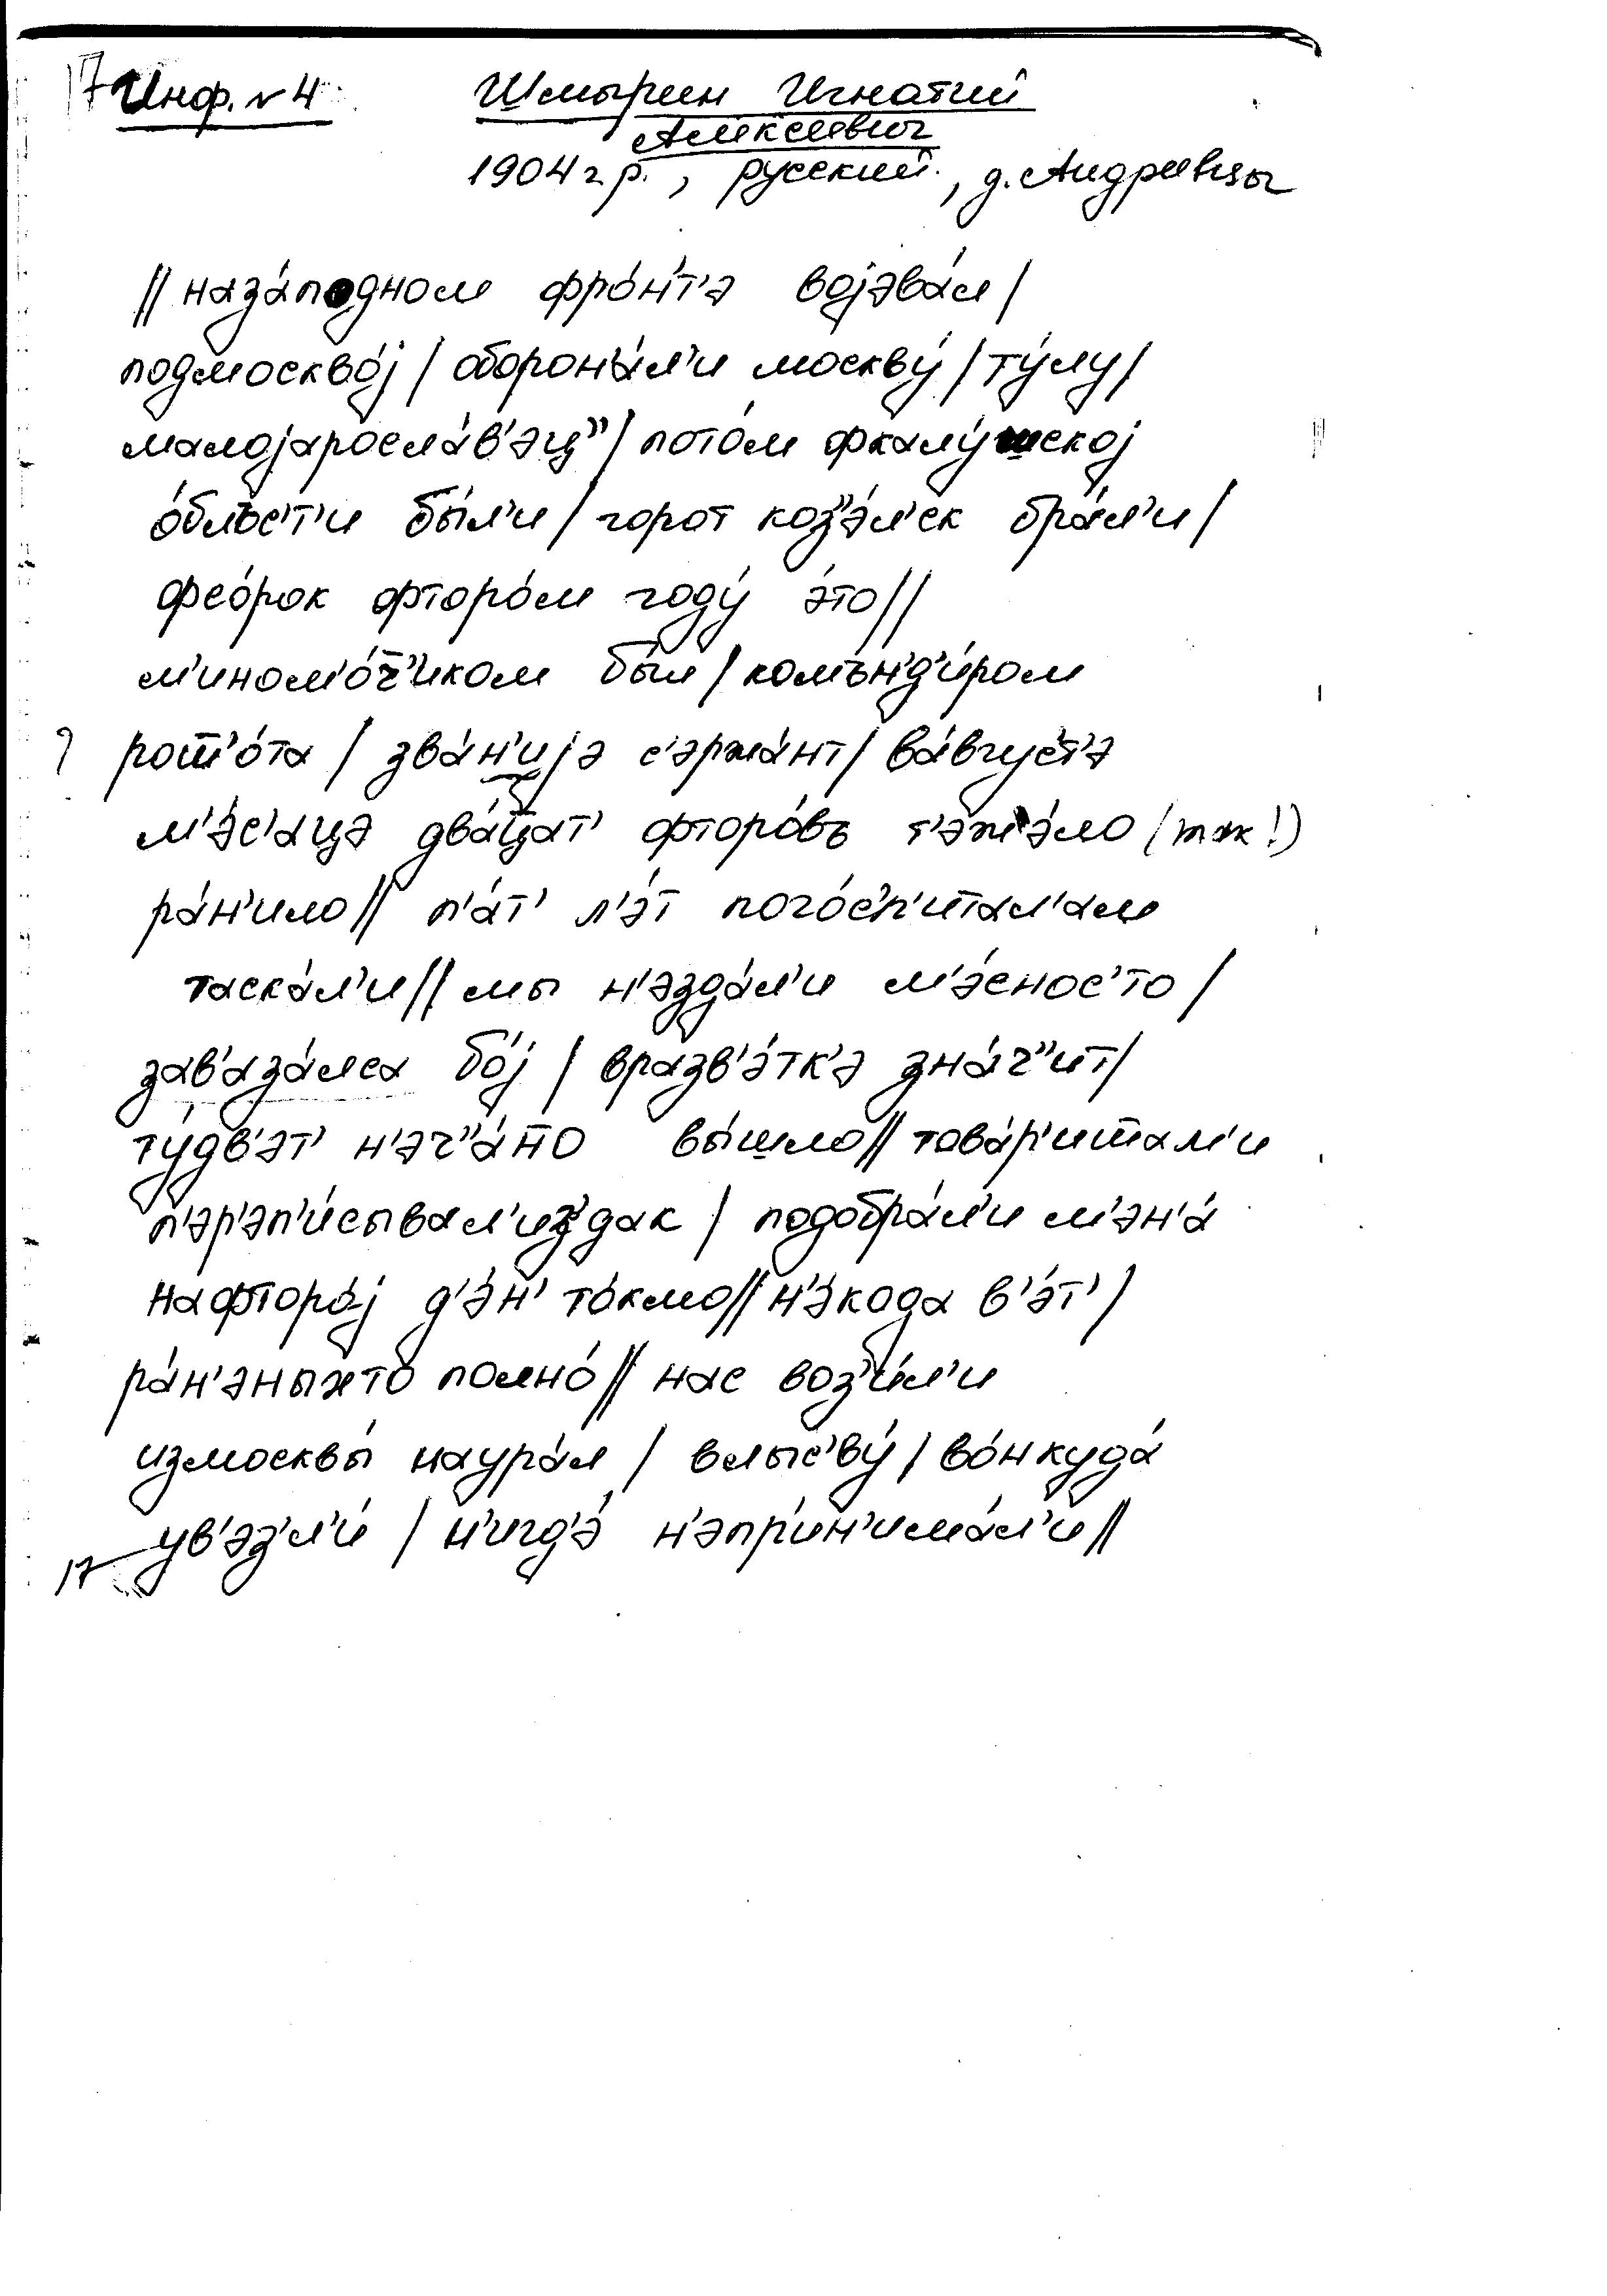 17 Инф. №4 Шмырин Игнатий
Алексеевич
1904 г.р., русский, д. Андреевцы
// наза́подном фро́н'т'э војэва́л /
подмоскво́ј / оборон'а́л'и москву́ / ту́лу /
малојаросла́в'эц" / пото́м фкалу́шској
о́блъс'т'и бы́л'и / горот коз"э́л'ск бра́л'и /
фсо́рок фторо́м году́ э́то //
м'ином'о́т̄ч"иком бы́л / комън'д'и́ром
? рош'о́та / зва́н'ијэ с'эржа́нт / ва́вгус'т'э
м'э́с'ацэ два́ц̄ат' фторо́въ т'эжэ́ло (так!)
ра́н'ило // п'а́т' л'э́т пого́с'п'итал'ам
таска́л'и // мы н'эзда́л'и м'э́снос'то /
зав'аза́лса бо́ј / вразв'э́тк'э зна́ч"ит /
ту́дв'эт' н'эч"а́н̄о вы́шло // това́р'ишам'и
п'эр'эп'и́сывал'из'дак / подобра́л'и м'эн'а́
нафторо́ј д'э́н' то́кмо // н'э́кода в'э́т' /
ра́н'эныхто полно́ // нас воз'и́л'и
измосквы́ наура́л / влыс'ву́ / во́н куда́
ув'эз'л'и́ / н'игд'э́ н'эпр'ин'има́л'и //
17